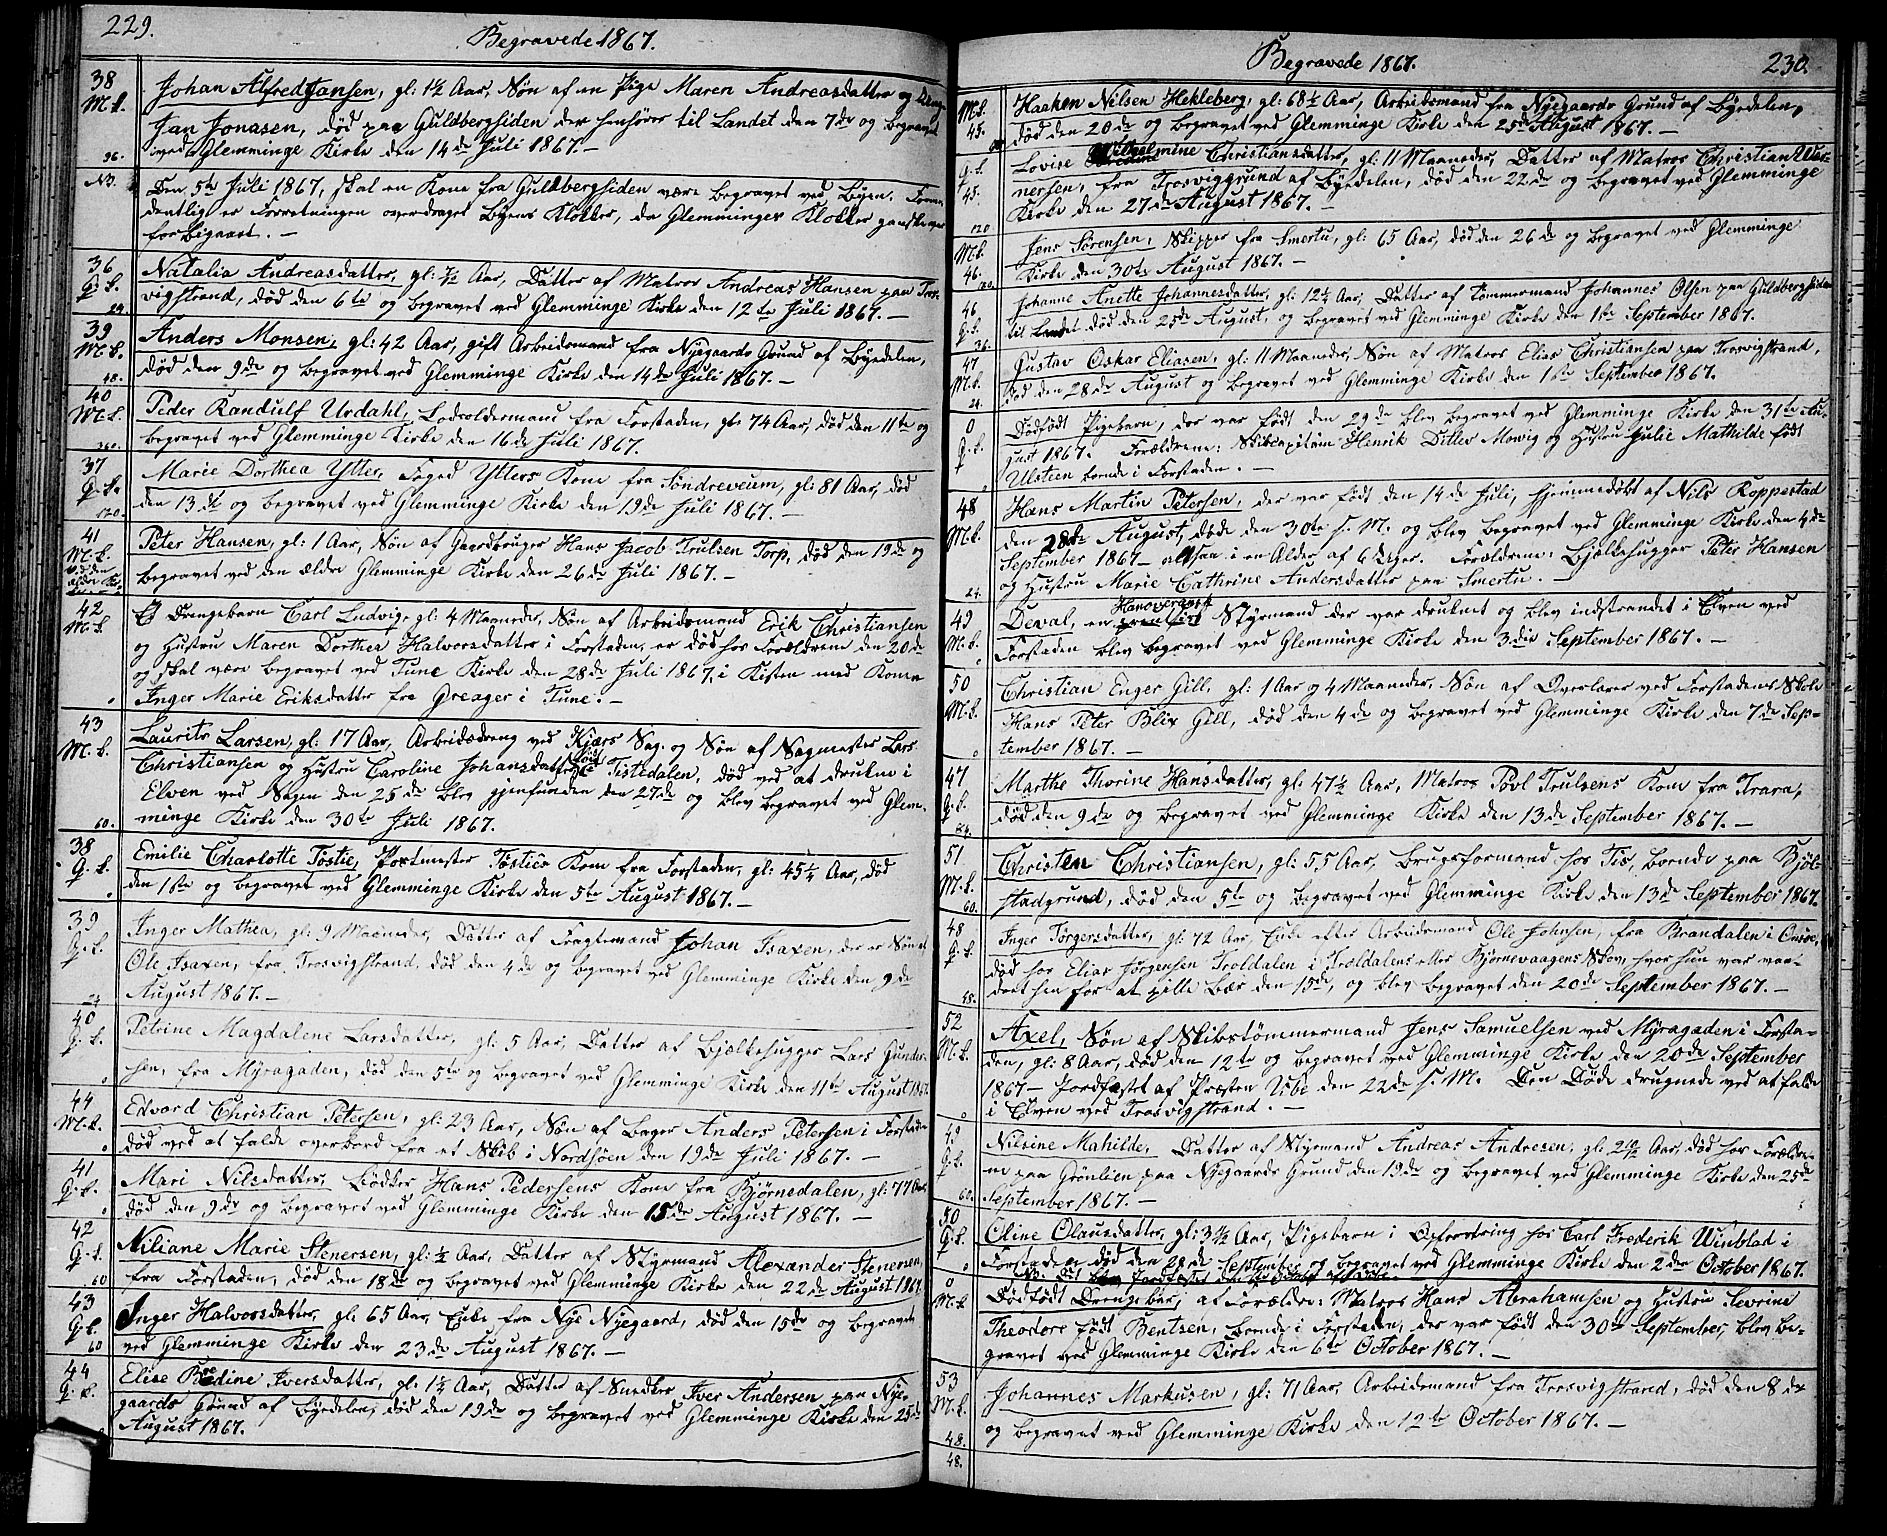 229.
Begravede 1867.
38 Johan Alfred Jansen, gl: 1½ Aar, Søn af en Pige Maren Andreasdatter og
M.k. Jan Jonasen, død paa Guldbergsiden der henhører til Landet den 7de og begravet
36. ved Glemminge Kirke den 14de Juli 1867. —
NB. Den 5te Juli 1867, skal en Kone fra Guldbergsiden være begravet ved Byen.
dentlig er Forretningen overdraget Byens Klokker, da Glemminges Klokker ganske er
forbigaaet. —
36 Natalia Andreasdatter, gl: ½ Aar, Datter af Matros Andreas Hansen paa Tros-
Q.k. vigstrand, død den 6te og begravet ved Glemminge Kirke den 12te Juli 1867. —
24
39 Anders Monsen, gl: 42 Aar, gift Arbeidsmand fra Nyegaards Grund af Byedelen,
M.k. død den 9de og begravet ved Glemminge Kirke den 14de Juli 1867. —
48.
40 Peder Randulf Urdahl, Lodsoldermand fra Forstaden, gl: 74 Aar, død den 11te og
M.k. begravet ved Glemminge Kirke den 16de Juli 1867.
360.
37 Marie Dorthea Ytter, Foged Ytters Kone fra Søndreveum, gl: 81 Aar, død
Q.k. den 13de og begravet ved Glemminge Kirke den 19de Juli 1867. —
120.
41 Peter Hansen, gl: 1 Aar, Søn af Gaardbruger Hans Jacob Trulsen Torp, død den 19de og
M.k. begravet ved den ældre Glemminge Kirke den 26de Juli 1867. —
ved den
ældre
42 Et Drengebarn Carl Ludvig, gl: 4 Maaneder, Søn af Arbeidsmand Erik Christiansen
M.k. og Hustru Maren Dorthea Halvorsdatter i Forstaden, er død hos Forældrene den 20de
og skal være begravet ved Tune Kirke den 28de Juli 1867, i Kisten med Kone
0 Inger Marie Eriksdatter fra Greager i Tune. —
43 Laurits Larsen, gl: 17 Aar, Arbeidsdreng ved Kjærs Sag. og Søn af Sagmester Lars
M.k. Christiansen og Hustru Caroline Johansdatter Tistedalen, død ved at drukne i
Elven ved Sagen den 25de blev gjenfunden den 27de og blev begravet ved Glem-
60. minge Kirke den 30te Juli 1867.
38 Emilie Charlotte Tøstie, Postmester Tøsties Kone fra Forstaden, gl: 45¼ Aar, død
Q.k. den 1ste og begravet ved Glemminge Kirke den 5te August 1867. —
0
39 Inger Mathea, gl: 9 Maaneder, Datter af Fragtemand Johan Isaxen, der er Søn af
Q.k. Ole Isaxen, fra Trosvigstrand, død den 4de og begravet ved Glemminge Kirke den 9de
24 August 1867. —
40 Petrine Magdalene Larsdatter, gl: 5 Aar, Datter af Bjælkehugger Lars Gunder-
Q.k. sen, fra Myragaden, død den 5te og begravet ved Glemminge Kirke den 11te August 1867.
0
44 Edvard Christian Petersen, gl: 23 Aar, Søn af Bager Anders Petersen i Forstaden
M.k. død ved at falde overbord fra et Skib i Nordsøen den 19de Juli 1867. —
0
41 Mari Nilsdatter, Bødker Hans Pedersens Kone fra Bjørnedalen, gl: 77 Aar
Q.k. død den 9de og begravet ved Glemminge Kirke den 15de August 1867. —
0
42 Niliane Marie Stenersen, gl: ½ Aar, Datter af Styrmand Alexander Stenersen,
Q.k. fra Forstaden, død den 18de og begravet ved Glemminge Kirke den 22de August 1867.
60
43 Inger Halvorsdatter, gl: 65 Aar, Enke fra Nye Nyegaard, død den 15de og begravet
Q.k. ved Glemminge Kirke den 23de August 1867. —
60
44 Elise Bredine Iversdatter, gl: 1¼ Aar, Datter af Snedker Iver Andersen paa Nye-
Q.k. gaards Grund af Byedelen, død den 19de og begravet ved Glemminge Kirke den 25de
August 1867.
Begravede 1867.
230.
M.k. Haaken Nilsen Hekleberg, gl: 68½ Aar, Arbeidsmand fra Nyegaards Grund af Byedelen,
45. død den 20de og begravet ved Glemminge Kirke den 25de August 1867. —
Q.k. Lovise Wilhelmine Christiansdatter, gl: 11 Maaneder, Datter af Matros Christian Wer-
45. nersen, fra Trosviggrund af Byedelen, død den 22de og begravet ved Glemminge
Kirke den 27de August 1867. —
120
M.k. Jens Sørensen, Skipper fra Smertu, gl: 65 Aar, død den 26de og begravet ved Glemminge
46. Kirke den 30te August 1867. —
46 Johanne Anette Johannesdatter, gl: 12¼ Aar, Datter af Tømmermand Johannes Olsen paa Guldbergsiden
Q.k. til Landet død den 25de August, og begravet ved Glemminge Kirke den 1ste September 1867.
36.
47 Gustav Oskar Eliasen, gl: 11 Maaneder, Søn af Matros Elias Christiansen paa Trosvigstrand,
M.k. død den 28de August og begravet ved Glemminge Kirke den 1ste September 1867.
24.
0 Dødfødt Pigebarn, der var født den 29de blev begravet ved Glemminge Kirke den 31te Au-
Q.k. gust 1867. Forældrene: Skibscapitain Henrik Ditlev Mowig og Hustru Julie Mathilde født
0 Ulsteen boende i Forstaden. —
48 Hans Martin Petersen, der var født den 14de Juli, hjemmedøbt af Nils Roppestad
M.k. den 28de August, døde den 30te s. M. og blev begravet ved Glemminge Kirke den 4de
September 1867 — altsaa i en Alder af 6 Uger. Forældrene: Bjelkehugger Peter Hansen
24. og Hustru Marie Cathrine Andersdatter paa Smertu. —
Hanoveransk
49 Deval, en Styrmand der var druknet og blev indstrandet i Elven ved
M.k. Forstaden blev begravet ved Glemminge Kirke den 3die September 1867. —
0
50 Christian Enger Gill, gl: 1 Aar og 4 Maaneder, Søn af Overlærer ved Forstadens Skole
M.k. Hans Peter Blix Gill, død den 4de og begravet ved Glemminge Kirke den 7de Sep-
0 tember 1867. —
47 Marthe Thorine Hansdatter, gl: 47½ Aar, Matros Povl Trulsens Kone fra Trara,
Q.k. død den 9de og begravet ved Glemminge Kirke den 13de September 1867. —
51 Christen Christiansen, gl: 55 Aar, Brugsformand hos Tis, boende paa Kjøl-
M.k. stadgrund, død den 5te og begravet ved Glemminge Kirke den 13de September 1867.
60.
48 Inger Tørgersdatter, gl: 72 Aar, Enke efter Arbeidsmand Ole Johnsen, fra Brandalen i Onsø,
Q.k. død hos Elias Jørgensen Troldalen i Troldalens eller Bjørnevaagens Skov, hvor hun var van-
48. dret hen for at pille Bær den 15de, og blev begravet den 20de September 1867. —
52 Axel, Søn af Skibstømmermand Jens Samuelsen ved Myragaden i Forsta-
M.k. den, gl: 8 Aar, død den 12te og begravet ved Glemminge Kirke den 20de September
1867 — Jordfæstet af Præsten Vibe den 22de s. M. Den Døde druknede ved at falde
0 i Elven ved Trosvigstrand. —
49 Nilsine Mahilde, Datter af Styrmand Andreas Andresen, gl: Aar, død hos Forældre-
Q.k. ne paa Grønlien paa Nyegaards Grund den 19de og begravet ved Glemminge Kirke den 25de
60. September 1867. —
50 Oline Olausdatter, gl: 3½ Aar, Pigebarn i Opfostring hos Carl Frederik Winblad i
Q.k. Forstaden død den 28de September og begravet ved Glemminge Kirke den 2den October 1867.
0
0 Dødfødt Drengebarn, af Forældre: Matros Hans Abrahamsen og Hustru Severine
M.k. Theodore født Bentsen, boende i Forstaden, der var født den 30te September, blev be-
gravet ved Glemminge Kirke den 6te October 1867. —
53 Johannes Markusen, gl: 71 Aar, Arbeidsmand fra Trosvigstrand, død den 8de
M.k. og begravet ved Glemminge Kirke den 12te October 1867. —
48.
48.